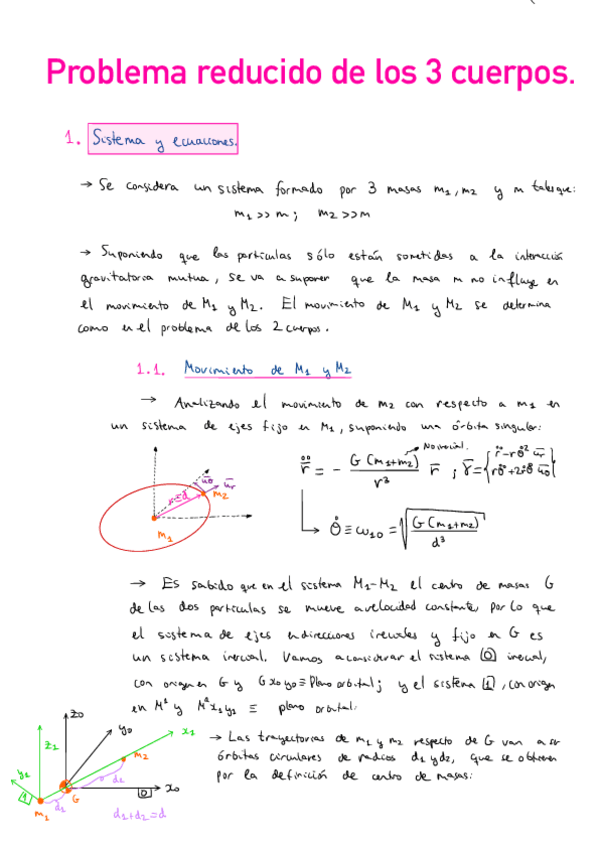 Problema reducido de los 3 cuerpos.
1. Sistema y ecuaciones.
→ Se considera un sistema formado por 3 masas m1, m2 y m tales que:
m1 >> m ; m2 >> m
→ Suponiendo que las partículas sólo están sometidas a la interacción
gravitatoria mutua, se va a suponer que la masa m no influye en
el movimiento de M1 y M2. El movimiento de M1 y M2 se determina
como en el problema de los 2 cuerpos.
1.1. Movimiento de M1 y M2
→ Analizando el movimiento de m2 con respecto a m1 en
un sistema de ejes fijo en M1, suponiendo una órbita singular:
No inercial.
r̈ = - G(m1+m2)/r³ r̄ ; γ̄ = { r̈-rθ̇² ūr
rθ̈+2ṙθ̇ ūθ }
ūθ
ūr
r=d
m2
m1
θ̇ ≡ ω10 = √(G(m1+m2)/d³)
→ Es sabido que en el sistema M1-M2 el centro de masas G
de las dos partículas se mueve a velocidad constante, por lo que
el sistema de ejes en direcciones inerciales y fijo en G es
un sistema inercial. Vamos a considerar el sistema 0 inercial,
con origen en G y Gx0y0 ≡ Plano orbital; y el sistema 1, con origen
en M1 y M1x1y1 ≡ plano orbital:
→ Las trayectorias de m1 y m2 respecto de G van a ser
órbitas circulares de radios d1 y d2, que se obtienen
por la definición de centro de masas:
z0
y0
x1
z1
m2
y1
d2
x0
1
G
0
m1
d1
d1+d2=d